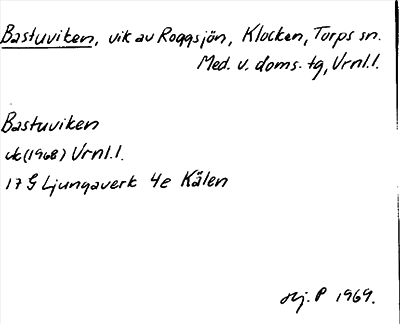 Bastuviken, vik av Roggsjön, Klocken, Torps sn.
Med. v. doms. tg, Vrnl.l.
Bastuviken
uk (1968) Vrnl.l.
17 G Ljungaverk 4e Kälen
P 1969.